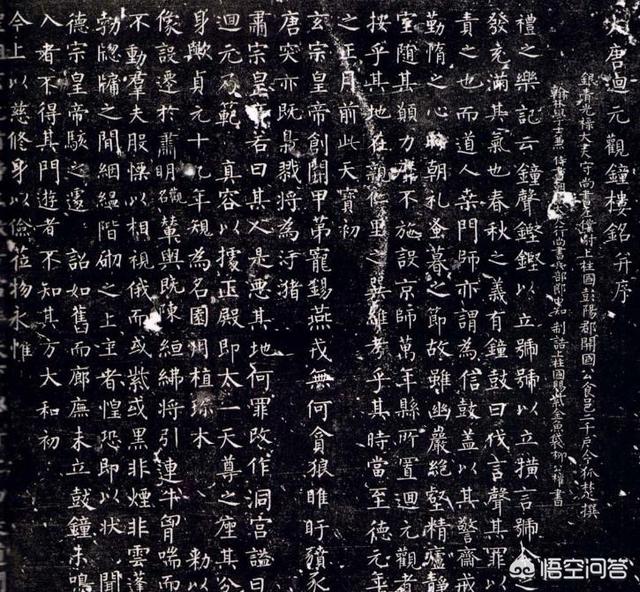 大唐迴元觀鐘樓銘并序
銀青光祿大夫守尚書左僕射上柱國彭陽郡開國公食邑二千戶令狐楚撰
翰林學士兼侍書朝行尚書兵部郎中知制誥上柱國賜紫金魚袋柳公權書
禮之樂記云鐘聲鏗鏗以立號號以立橫言號令之
發充滿其氣也春秋之義有鐘鼓曰伐言聲其罪以
責之也而道人桑門師亦謂為信鼓蓋以其警齋戒
勤惰之心時朝礼蚤暮之節故雖幽巖絕壑精廬靜
室隨其願力靡不施設京師萬年縣所置迴元觀者
按乎其地在親仁里之巽維考乎其時當至德元年
之正月前此天寶初
玄宗皇帝創開甲第寵錫燕戎無何貪狼睢盱豶豕
唐突亦既梟戮將為汙豬
肅宗皇帝若曰其人是惡其地何罪改作洞宮謚曰
迴元乃範 真容以據正殿即太一天尊之座其分
身歟貞元十九年規為名園用植珍木 勅以
像設遷於肅明觀輦輿既陳絙紼將引連牛胷喘而
不動羣夫股慄以相視俄而或紫或黑非煙非雲蓬
勃牕牖之間絪縕階砌之上主者惶恐即以狀 聞
德宗皇帝駭之遽 詔如舊而廊廡未立鼓鐘未鳴
入者不得其門遊者不知其方大和初
今上以慈修身以儉莅物永惟
悟空问答